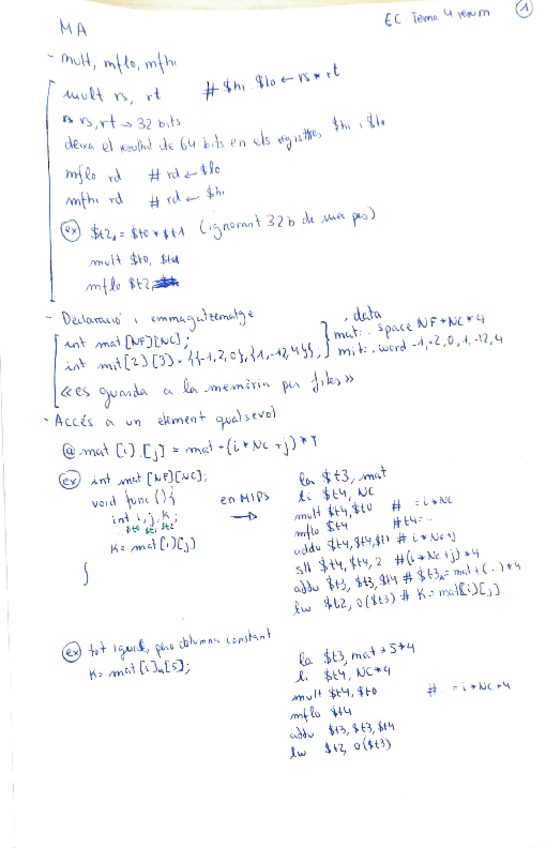 EC Tema 4 resum 1
MA
- mult, mflo, mfhi
mult rs, rt # $hi $lo ← rs * rt
rs, rt → 32 bits
deixa el resultat de 64 bits en els registres, $hi i $lo
mflo rd # rd ← $lo
mfhi rd # rd ← $hi
ex $t2 = $t0 * $t1 (ignorant 32 b de més pes)
mult $t0, $t1
mflo $t2
- Declaració i emmagatzematge
int mat[NF][NC];
int mit[2][3] = {{-1,2,0},{1,-12,4}};
.data
mat: .space NF*NC*4
mit: .word -1,-2,0,1,-12,4
«es guarda a la memòria per files»
- Accés a un element qualsevol
@mat[i][j] = mat + (i * NC + j) * T
ex int mat[NF][NC];
void func(){
int i, j, k;
$t0 $t1 $t2
k = mat[i][j]
}
en MIPS →
la $t3, mat
li $t4, NC
mult $t4, $t0 # = i*NC
mflo $t4 # t4 = ..
addu $t4, $t4, $t1 # i*NC+j
sll $t4, $t4, 2 #(i*NC+j)*4
addu $t3, $t3, $t4 # $t3 = mat+(..)*4
lw $t2, 0($t3) # k = mat[i][j]
ex tot igual, però columna constant
k = mat[i][5];
la $t3, mat + 5*4
li $t4, NC*4
mult $t4, $t0 # = i*NC*4
mflo $t4
addu $t3, $t3, $t4
lw $t2, 0($t3)